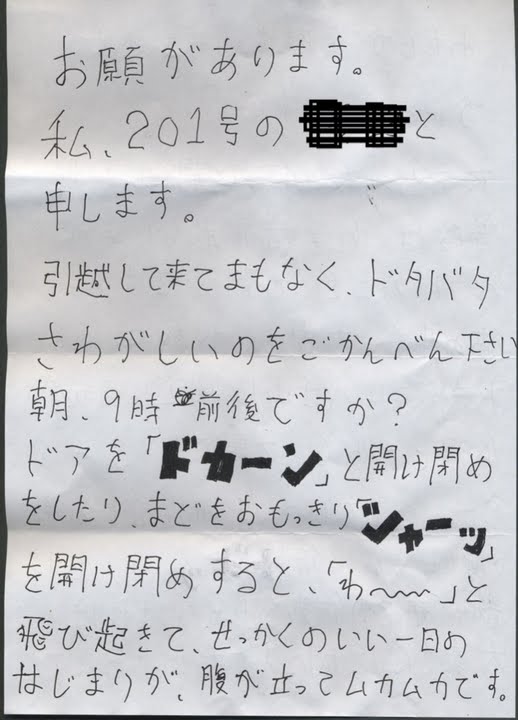 お願があります。
私、201号の と
申します。
引越して来てまもなく、ドタバタ
さわがしいのをごかんべん下さい
朝、9時 前後ですか?
ドアを「ドカーン」と開け閉め
をしたり、まどをおもっきり「シャーッ」
を開け閉めすると、「わ〜〜」と
飛び起きて、せっかくのいい一日の
はじまりが、腹が立ってムカムカです。